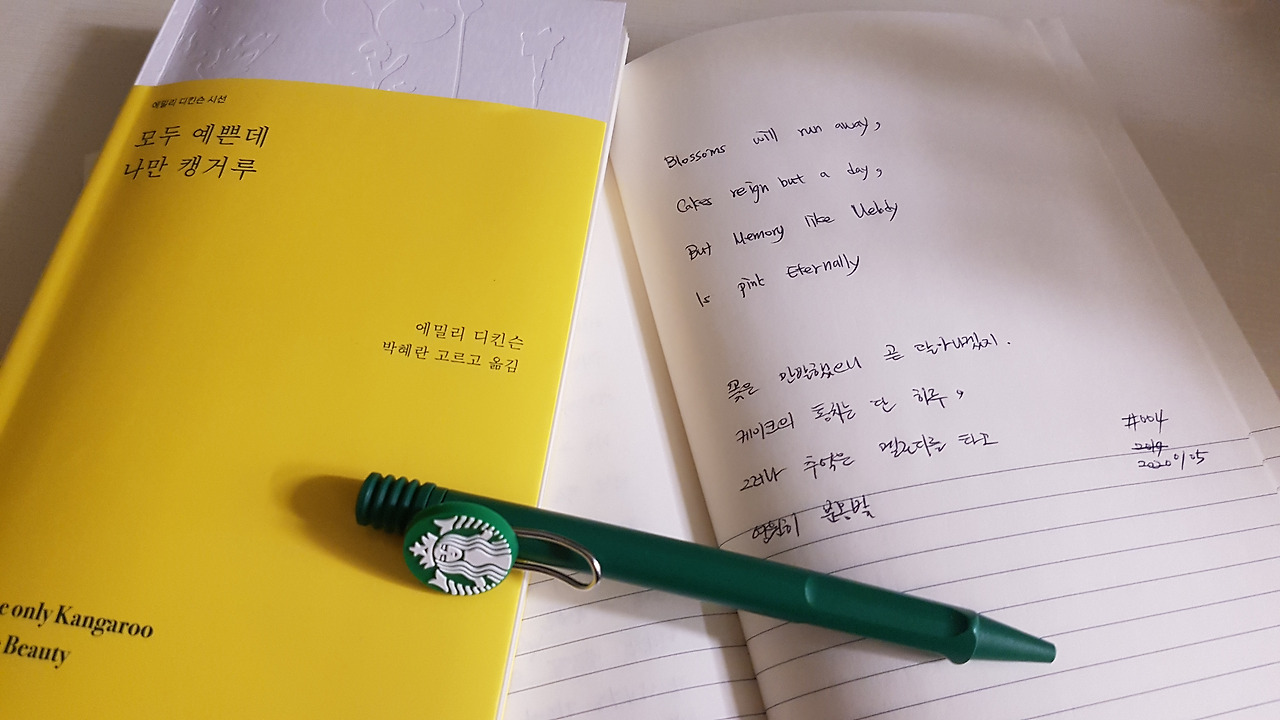 에밀리 디킨슨 시선
모두 예쁜데
나만 캥거루
에밀리 디킨슨
박혜란 고르고 옮김
e only Kangaroo
Beauty
Blossoms will run away,
Cakes reign but a day,
But Memory like Melody
Is pink Eternally
꽃은 만발했으니 곧 달아나겠지.
케이크의 통치는 단 하루,
그러나 추억은 멜로디를 타고
영원히 분홍빛
#004
2019
2020 01/05